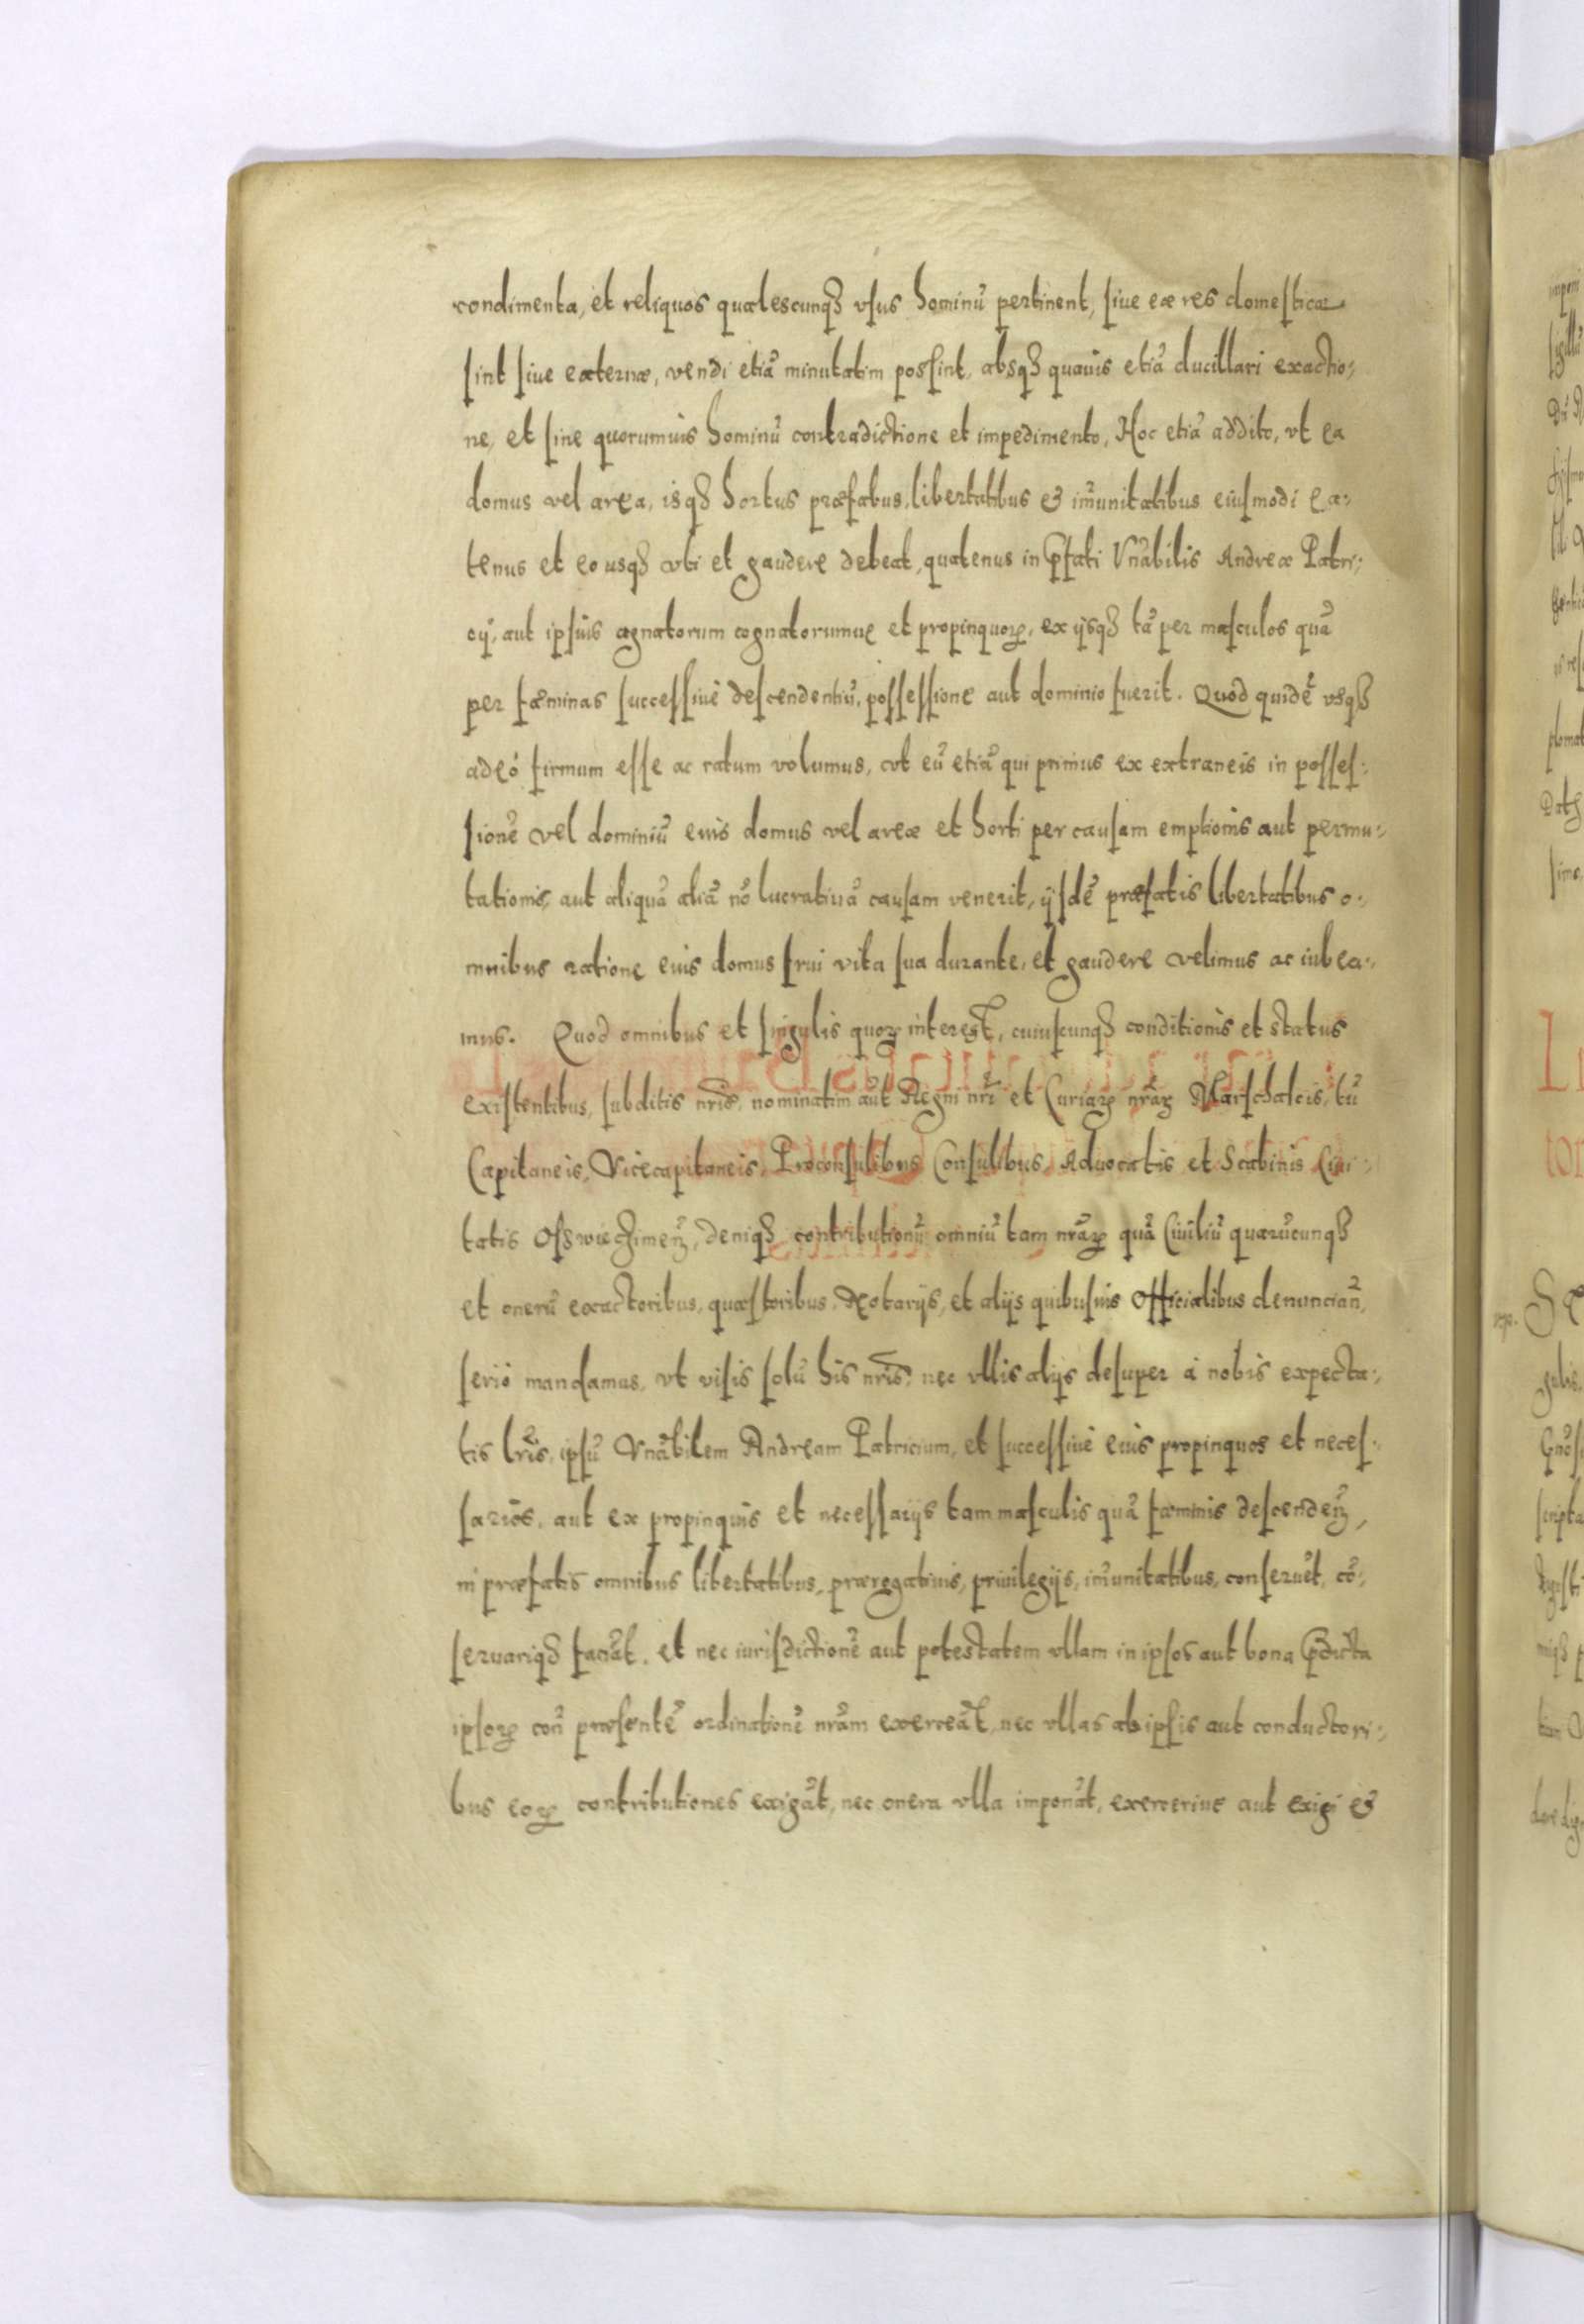 condimenta, et reliquos qualescunqȝ vsus hominũ pertinent, siue eæ res domesticæ
sint siue externæ, vendi etiã minutatim possint, absqȝ quauis etiã ducillari exactio:,
ne, et sine quorumuis hominũ contradictione et impedimento, Hoc etiã addito, vt ea
domus vel area, isqȝ hortus præfatus, libertatibus & im̃unitatibus eiusmodi ea:,
tenus et eousqȝ vti et gaudere debeat, quatenus in p̱fati Vnãbilis Andreæ Patri:,
cÿ, aut ipsius agnatorum cognatorumue et propinquoꝝ, ex ÿsqȝ tã per masculos quã
per fæminas successiuè descendentiũ, possessione aut dominio fuerit. Quod quidẽ vsqȝ
adeò firmum esse ac ratum volumus, vt eũ etiã qui primus ex extraneis in posses:,
sionẽ vel dominiũ eius domus vel areæ et horti per causam emptionis aut permu:,
tationis, aut aliquã aliã nõ lucratiuã causam venerit, ÿsdẽ præfatis libertatibus o:,
mnibus ratione eius domus frui vita sua durante, et gaudere velimus ac iubea:,
mus. Quod omnibus et singulis quoꝝ interest, cuiuscunqȝ conditionis et status
existentibus, subditis nr̃is, nominatim aũt Regni nr̃i et Curiaꝝ nr̃aꝝ Marschalcis, tũ
Capitaneis, Vicecapitaneis, Proconsulibus Consulibus, Aduocatis et Scabinis Ciui:,
tatis Osswieczimeñ, deniqȝ contributionũ omniũ tam nr̃aꝝ quã Ciuiliũ quarũcunqȝ
et onerũ exactoribus, quæstoribus, Notarÿs, et alÿs quibusuis Officialibus denuncian̄,
seriò mandamus, vt visis solũ his nr̃is, nec vllis alÿs desuper à nobis expecta:,
tis lr̃is, ipsũ Vnãbilem Andream Patricium, et successiuè eius propinquos et neces:,
sarios, aut ex propinquis et necessarÿs tam masculis quã fæminis descendeñ,
in præfatis omnibus libertatibus, prærogatiuis, priuilegÿs, im̃unitatibus, conseruẽt, cõ:,
seruariqȝ faciãt, et nec iurisdictionẽ aut potestatem vllam in ipsos aut bona p̱dicta
ipsoꝝ coñ præsentẽ ordinationẽ nr̃am exerceãt, nec vllas ab ipsis aut conductori:,
bus eoꝝ contributiones exigãt, nec onera vlla imponãt, exerceriue aut exigi &